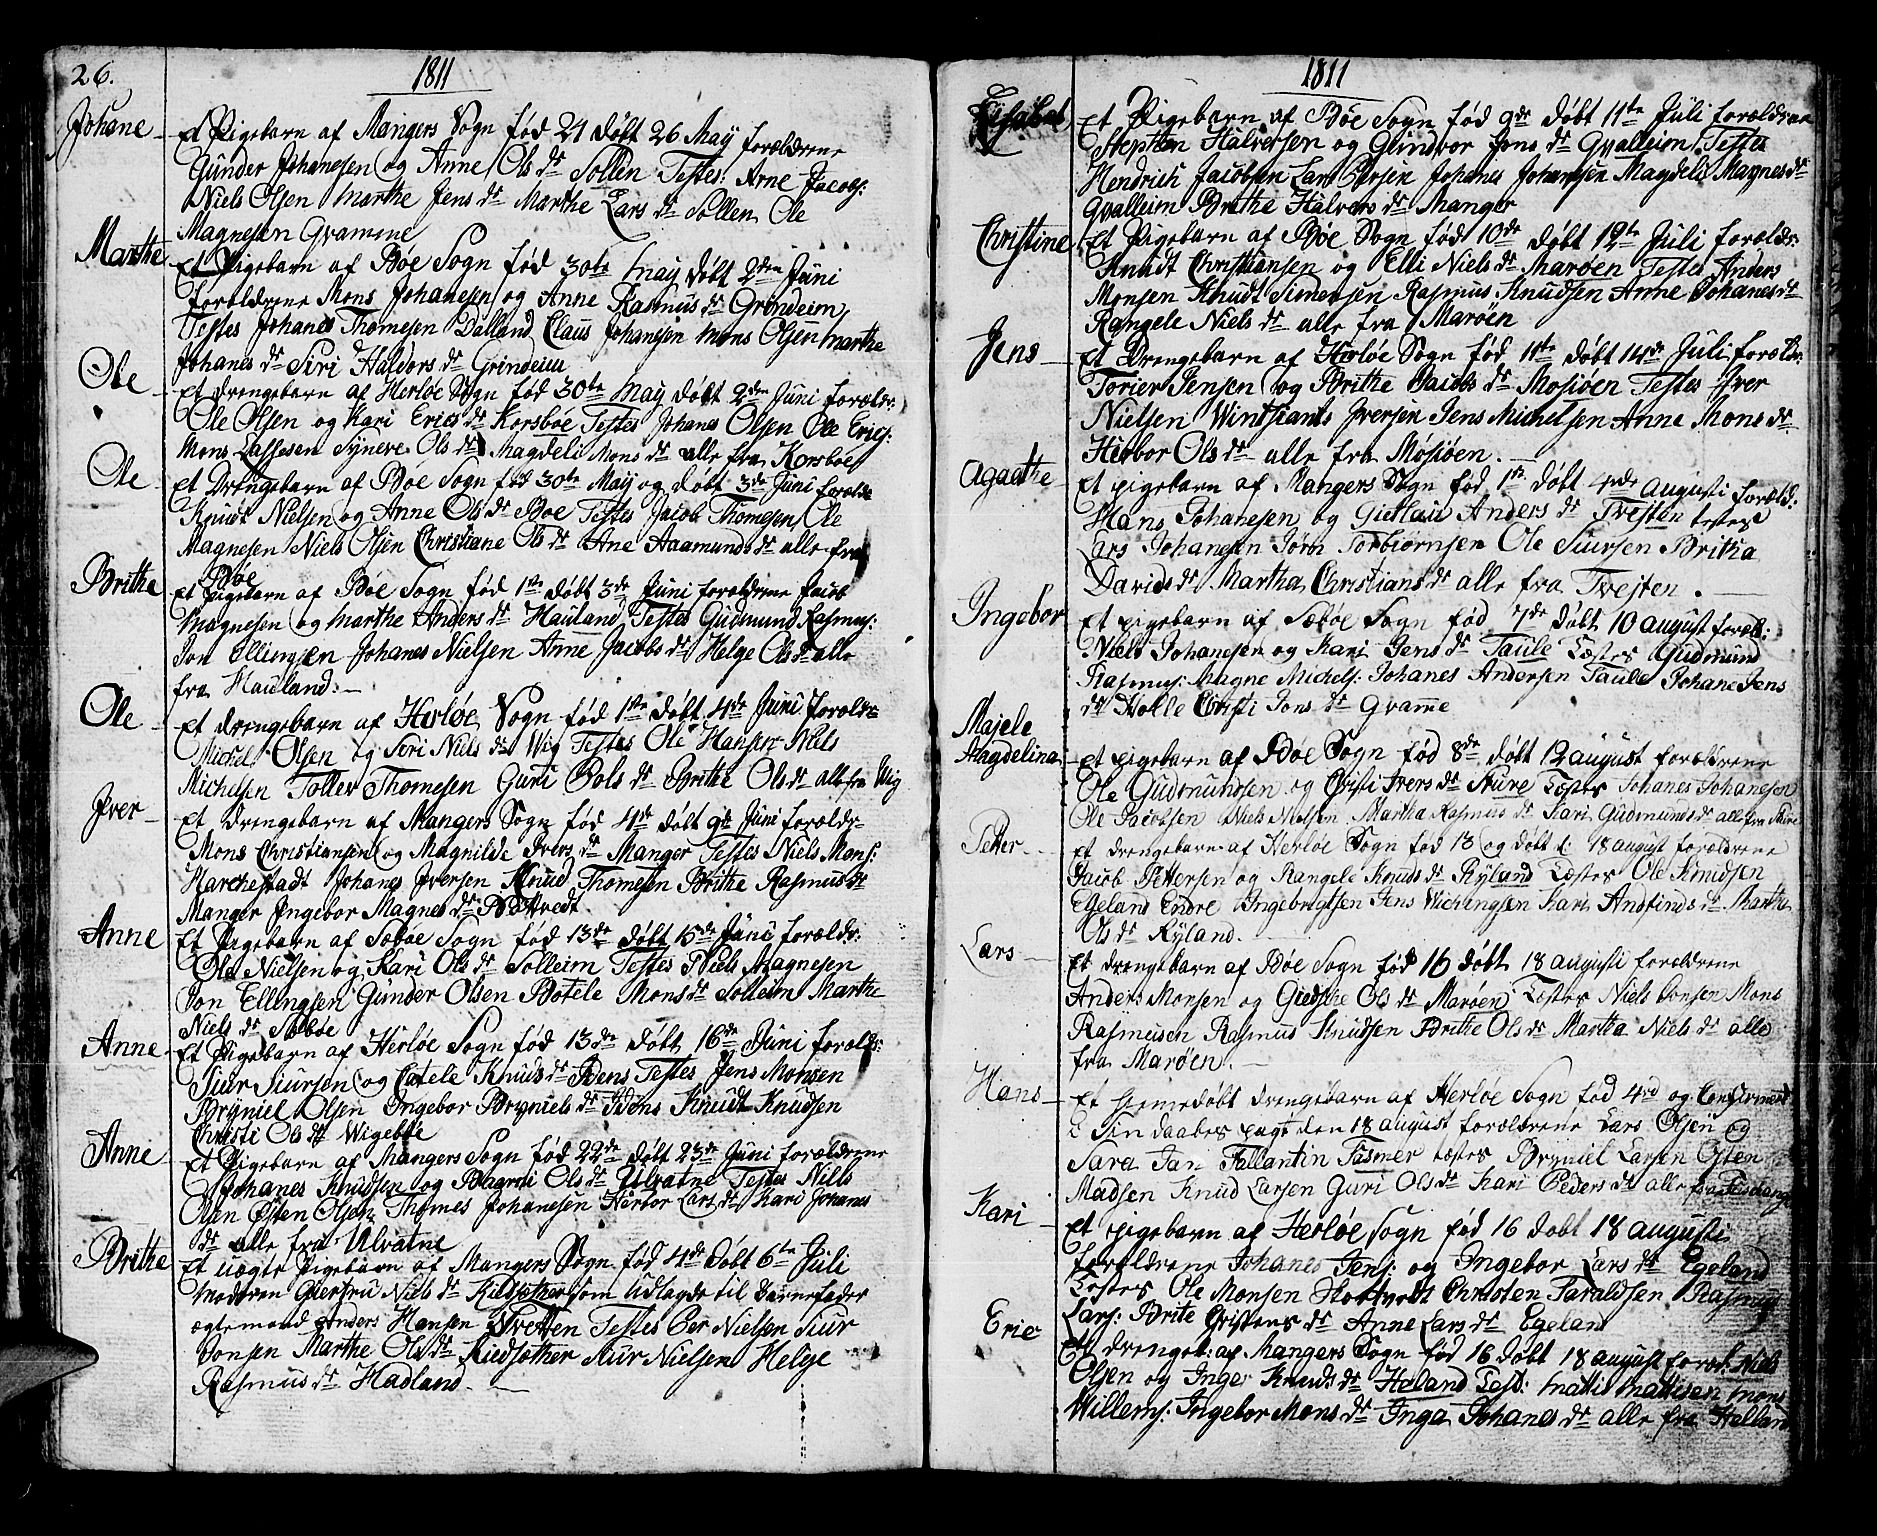 26.
1811
Johane
Et Pigebarn af Mangers Sogn fød 21 døbt 26 May forældrene
Gunder Johanesen og Anne Ols dr Sollen Testes: Arne Jacobs:
Niels Olsen Marthe Jens dr Marthe Lars dr Sollen Ole
Magnesen Gvamme
Marthe
Et Pigebarn af Bøe Sogn fød 30te May døbt 2den Juni
forældrene Mons Johanesen og Anne Rasmus dr Grindeim
Testes Johanes Thomesen Dalland Claus Johansen Mons Olsen Marthe
Johanes dr Siri Haldors dr Grindeim
Ole
Et drengebarn af Herløe Sogn fød 30te May døbt 2den Juni forældr:
Ole Olsen og Kari Erics dr Korsbøe Testes Johanes Olsen Ole Erics:
Mons Lassesen Synere Ols dr Magdeli Mons dr alle fra Korsbøe
Ole
Et Drengebarn af Bøe Sogn fød 30te May og døbt 3de Juni foræld:
Knudt Nielsen og Anne Ols dr Bøe Testes Jacob Thomesen Ole
Magnesen Niels Olsen Christiane Ols dr Ane Aamunds dr alle fra
Bøe
Brithe
Et Pigebarn af Bøe Sogn fød 1ste døbt 3de Juni forældrene Jacob
Magnesen og Marthe Anders dr Hauland Testes Gudmund Rasmus:
Jon Ellingsen Johanes Nielsen Anne Jacobs dr Helge Ols dr alle
fra Hauland.
Ole
Et drengebarn af Herløe Sogn fød 1ste døbt 4de Juni foræld:
Michel Olsen og Seri Niels dr Wig Testes Ole Hansen Niels
Michelsen Toller Thomesen Guri Pols dr Brithe Ols dr alle fra Wig
Jver
Et drengebarn af Mangers Sogn fød 4de døbt 9de Juni forældr:
Mons Christiansen og Magnilde Ivers dr Manger Testes Niels Mons:
Marchestadt Johanes Iversen Knud Thomesen Brithe Rasmus dr
Manger Ingebor Magnes dr Bøtvedt
Anne
Et Pigebarn af Sæbøe Sogn fød 13de døbt 15de Juni forældr:
Ole Nielsen og Kari Ols dr Solleim Testes Niels Magnesen
Jon Ellingsen Gunder Olsen Botele Mons dr Solleim Marthe
Niels dr Sæbøe
Anne
Et Pigebarn af Herløe Sogn fød 13de døbt 16de Juni forældr:
Siur Siursen og Catele Knuds dr Bøns Testes Jens Monsen
Bryniel Olsen Ingebor Bryniels dr Bøns Knudt Knudsen
Christi Ols dr Wigebøe
Anne
Et Pigebarn af Mangers Sogn fød 22de døbt 23de Juni forældrene
Johanes Knudsen og Bagrni Ols dr Ulvatne Testes Niels
Olsen Østen Olsen Thomes Johanesen Herbor Lars dr Kari Johanes
dr alle fra Ulvatne
Brithe
Et uægte Pigebarn af Mangers Sogn fød 4de døbt 6te Juli
Moderen Giertru Niels dr Kidsæther som udlagde til Barnefader
ægtemand Anders Hansen Tvetten Testes Per Nielsen Siur
Jonsen Marthe Ols dr Kidsæther Siur Nielsen Helge
Rasmus dr Hadland.
1811
Elisabet
Et Pigebarn af Bøe Sogn fød 9de døbt 11te Juli forældrene
Stephen Halversen og Gundvor Jons dr Qvalleim Testes
Hendrich Jacobsen Lars Persen Johanes Johansen Magdeli Magnes dr
Qvalleim Brithe Halvers dr Manger
Christine
Et Pigebarn af Bøe Sogn fød 10de døbt 12te Juli forældr:
Knudt Christiansen og Elli Niels dr Marøen Testes Anders
Monsen Knudt Simensen Rasmus Knudsen Anne Johanes dr
Rangele Niels dr alle fra Marøen
Jens
Et Drengebarn af Herløe Sogn fød 11te døbt 14de Juli foreldr:
Torier Jensen og Brithe Jacobs dr Mosiøen Testes Iver
Nielsen Wintsiants Iversen Jens Michelsen Anne Mons dr
Herbor Ols dr alle fra Mosiøen.
Agaethe
Et pigebarn af Mangers Sogn fød 1ste døbt 4rde Augusti foræld:
Hans Johanesen og Giertau Anders dr Tvejten testes
Lars Johanesen Jørn Torbiørnsen Ole Siursen Britha
Davids dr Martha Christians dr alle fra Tvejten.
Ingebor
Et pigebarn af Sæbøe Sogn fød 7de døbt 10 august foræld:
Niels Johanesen og Kari Jens dr Taule Tæstes Gudmund
Rasmus: Magne Michels: Johanes Andersen Taule Johane Jens
dr Holle Christi Jons dr Gvamme
Majele
Magdelina
Et pigebarn af Bøe Sogn fød 8de døbt 12 august forældrene
Ole Gudmundsen og Christi Ivers dr Sture Tæstes Johanes Johanesen
Ole Jacobsen Niels Nielsen Martha Rasmus dr Kari Gudmunds dr alle fra Sture
Petter
Et drengebarn af Herløe Sogn fød 13 og døbt d: 18 august forældrene
Jacob Pettersen og Rangele Knuds dr Ryland Tæstes Ole Knudsen
Egeland Endre Ingebrigtsen Jens Wichingsen Kari Andfinds dr Martha
Ols dr Ryland.
Lars
Et drengebarn af Bøe Sogn fød 16 døbt 18 augusti forældrene
Anders Monsen og Giedsche Ols dr Marøen Tæstes Niels Jonsen Mons
Rasmeusen Rasmus Knudsen Brithe Ols dr Martha Niels dr alle
fra Marøen.
Hans
Et hiemedøbt drengebarn af Herløe Sogn fød 4rd og Confirmert
i Sin daabes pagt den 18 august forældrene Lars Olsen og
Sara Jan Fallantin Fasmer tæstes Bryniel Larsen Østen
Madsen Knud Larsen Guri Ols dr Kari Peders dr alle fra
Kari
Et pigebarn af Herløe Sogn fød 16 døbt 18 augusti
forældrene Johanes Jens: og Ingebor Lars dr Egeland
Tæstes Ole Monsen Christen Taraldsen Rasmus
Lars: Brite Cristens dr Anne Lars dr Egeland
Eric
Et drengeb: af Mangers Sogn fød 16 døbt 18 august foræd: Niels
Olsen og Inger Knuds dr Heland Tæst: Matti Mattisen Mons
Willems: Ingebor Mons dr Inga Johanes dr alle fra Helland